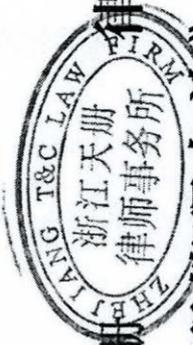 ZHEJIANG T&C LAW FIRM
浙江天册
律师事务所